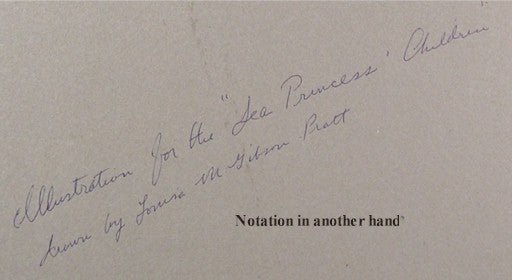 Illustration for the "Sea Princess' Children"
drawn by Louisa M Gibson Pratt
Notation in another hand